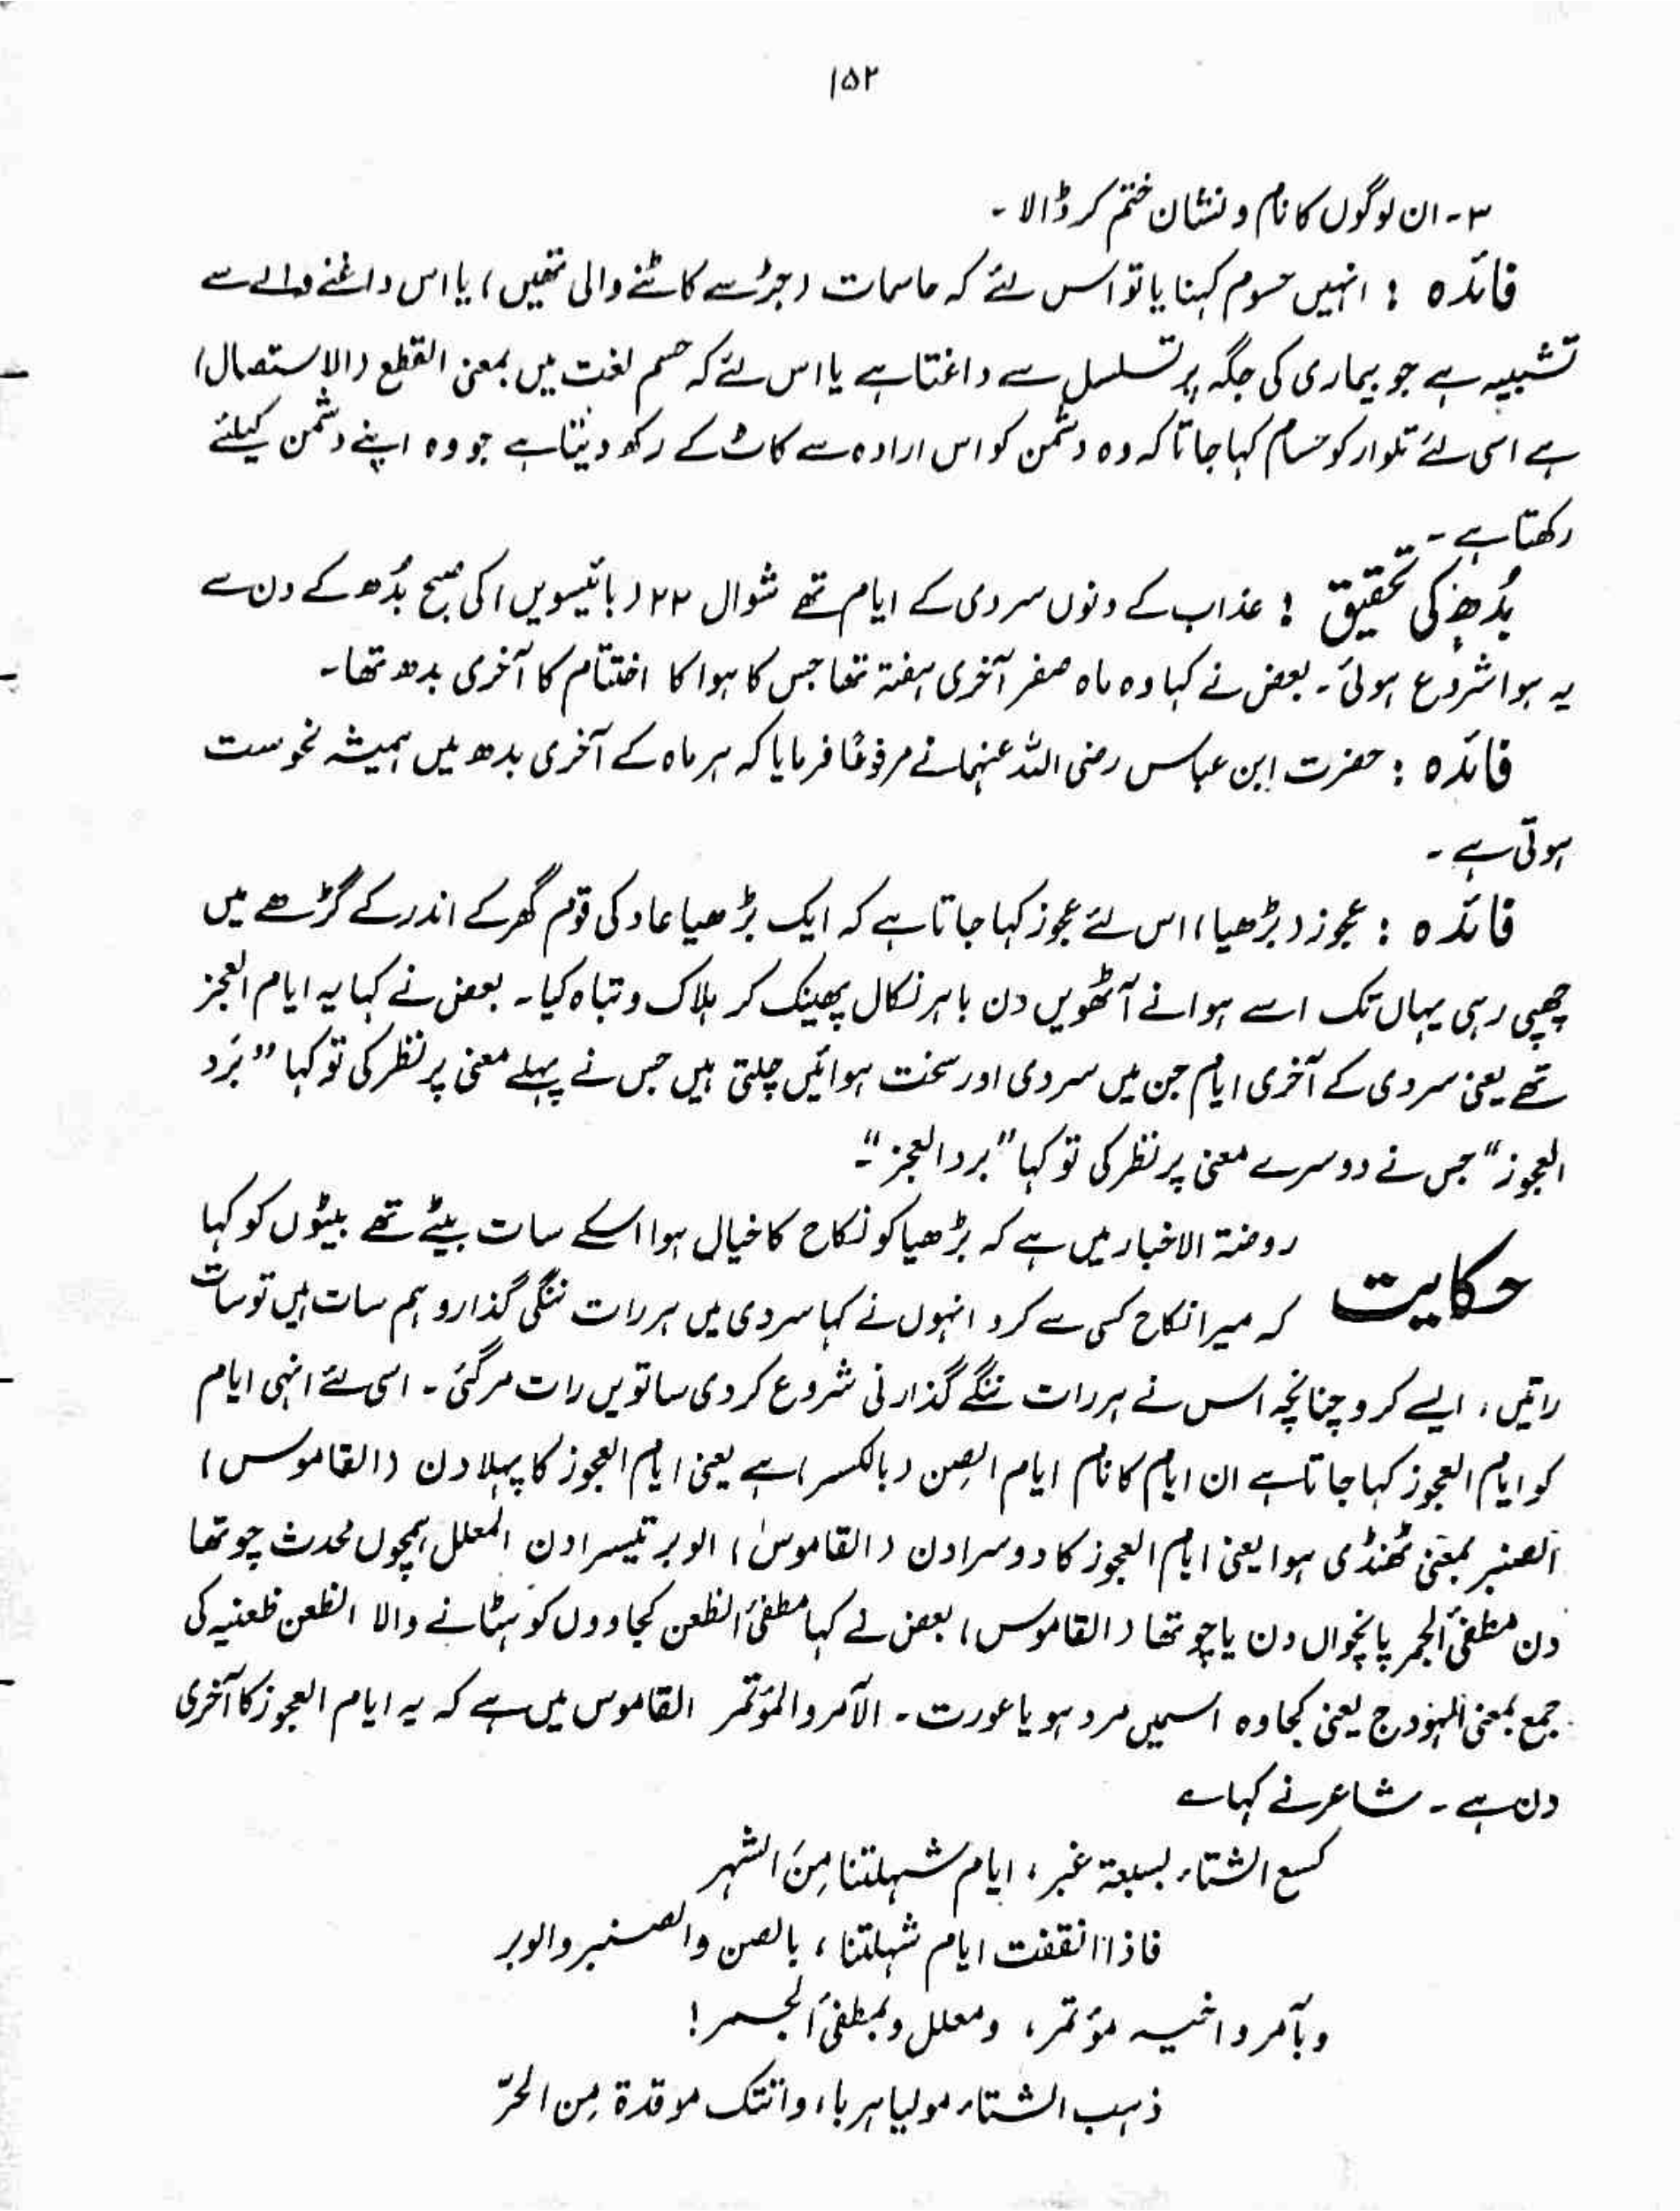 ۱۵۲
۳- ان لوگوں کا نام و نشان ختم کر ڈالا ۔
فائدہ : انہیں حسوم کہنا یا تو اس لئے کہ حاسمات (جڑ سے کاٹنے والی تھیں) یا اس داغنے والے سے
تشبیہ ہے جو بیماری کی جگہ پر تسلسل سے داغتا ہے یا اس لئے کہ حسم لغت میں بمعنی القطع (الاستصال)
ہے اسی لئے تلوار کو حسام کہا جاتا کہ وہ دشمن کو اس ارادہ سے کاٹ کے رکھ دیتا ہے جو وہ اپنے دشمن کیلئے
رکھتا ہے ۔
بُدھ کی تحقیق : عذاب کے دنوں سردی کے ایام تھے شوال ۲۲ (بائیسویں) کی صبح بُدھ کے دن سے
یہ ہوا شروع ہوئی ۔ بعض نے کہا وہ ماہ صفر آخری ہفتہ تھا جس کا ہوا کا اختتام کا آخری بدھ تھا ۔
فائدہ : حضرت ابن عباس رضی اللہ عنہما نے مرفوعًا فرمایا کہ ہر ماہ کے آخری بدھ میں ہمیشہ نحوست
ہوتی ہے ۔
فائدہ : عجوز (بڑھیا) اس لئے عجوز کہا جاتا ہے کہ ایک بڑھیا عاد کی قوم گھر کے اندر کے گڑھے میں
چھپی رہی یہاں تک اسے ہوا نے آٹھویں دن باہر نکال پھینک کر ہلاک و تباہ کیا ۔ بعض نے کہا یہ ایام العجز
تھے یعنی سردی کے آخری ایام جن میں سردی اور سخت ہوائیں چلتی ہیں جس نے پہلے معنی پر نظر کی تو کہا ”بَرد
العجوز“ جس نے دوسرے معنی پر نظر کی تو کہا ”برد العجز“ ۔
حکایت روضۃ الاخبار میں ہے کہ بڑھیا کو نکاح کا خیال ہوا اسکے سات بیٹے تھے بیٹوں کو کہا
کہ میرا نکاح کسی سے کرو انہوں نے کہا سردی میں ہر رات ننگی گذارو ہم سات ہیں تو سات
راتیں، ایسے کرو چنانچہ اس نے ہر رات ننگے گذارنی شروع کر دی ساتویں رات مر گئی ۔ اسی لئے انہی ایام
کو ایام العجوز کہا جاتا ہے ان ایام کا نام ایام الصِن (بالکسر) ہے یعنی ایام العجوز کا پہلا دن (القاموس)
الصنبر بمعنی ٹھنڈی ہوا یعنی ایام العجوز کا دوسرا دن (القاموس) الوبر تیسرا دن المعلل ہمچوں محدث چوتھا
دن مطفئ الجمر پانچواں دن یا چوتھا (القاموس) بعض نے کہا مطفئ الظعن کجاووں کو ہٹانے والا الظعن ظعنیہ کی
جمع بمعنی الہودج یعنی کجاوہ اسمیں مرد ہو یا عورت ۔ الآمر والمؤتمر القاموس میں ہے کہ یہ ایام العجوز کا آخری
دن ہے ۔ شاعر نے کہا ؎
کسع الشتاء بسبعۃ غبر ، ایام شہلتنا مِنَ الشہر
فاذا انقفت ایام شہلتنا ، بالصن والصنبر والوبر
وبآمر واخیہ مؤتمر ، ومعلل وبمطفئ الجمر !
ذہب الشتاء مولیا ہربا ، واتتک موقدۃ مِن الحرّ